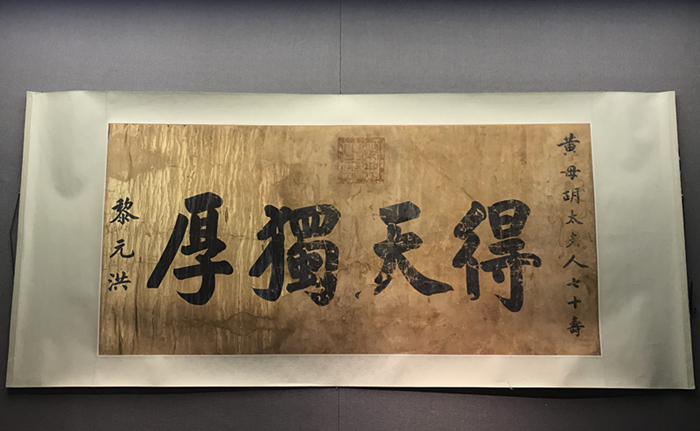 黄母胡太夫人七十壽
得天獨厚
黎元洪